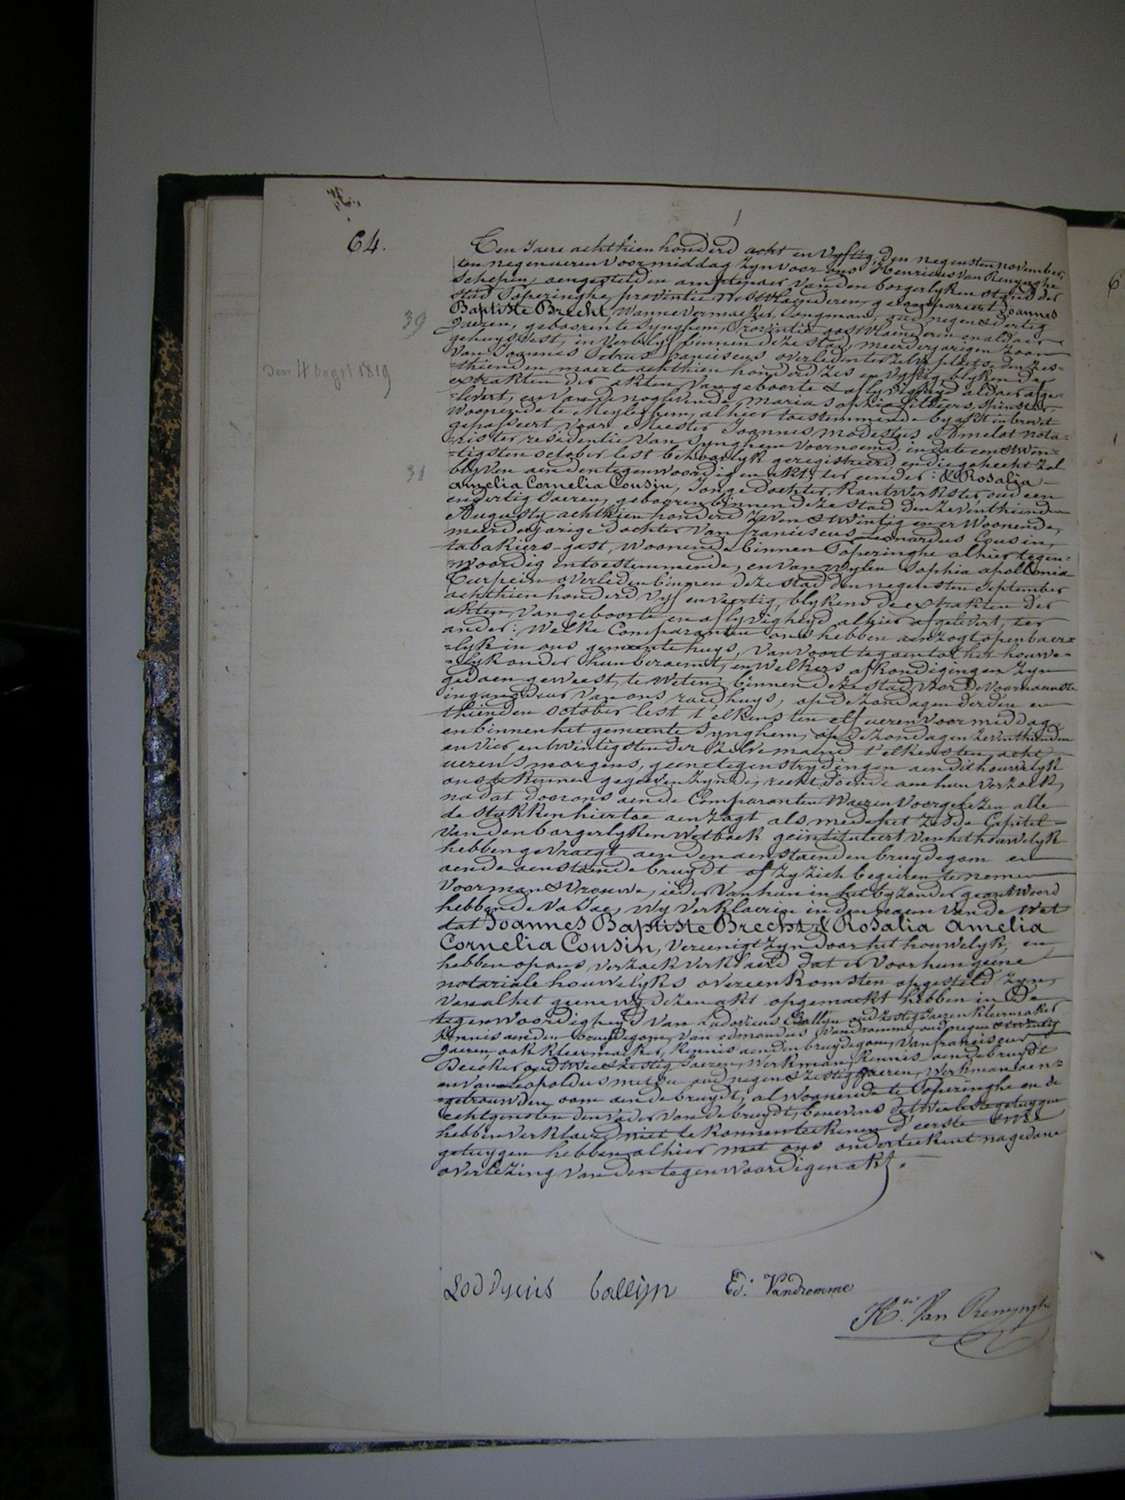 64.
Een Jaere achthien honderd acht en Vyftig, den negensten november,
ten negen ueren Voormiddag Zyn Voor ons Henricus Van Renynghe
Schepen, aengestelden amptenaer van den borgerlyken stand der
stad Poperinghe, provintie Westvlaenderen, gecompareert Joannes
Baptiste Brecht, Wannevermaeker, Jongman, oud negen & dertig
39
Jaeren, geboren te Synghem, Provintie oostvlaenderen en aldaer
gehuysvest, in verblyf binnen deze stad, meerderjarigen Zoon
Van Joannes Petrus Franciscus overleden ter zelve plaetse den zes-
den 4 1819
-thienden maerte achthien honderd zes en Vyftig, blykens de
extrakten der akten Van geboorte & aflyvigheyd aldaer afge-
-levert, en Van de nog levende Maria Sophia, Spinster
Woonende te Meylegem, alhier toestemmende by akt in brevet
gepasseert voor Meester Joannes Modestus Amelot nota-
-ris ter residentie Van Synghem Voornoemd, in date een & twin-
-tigsten october lest behoorlyk geregistreerd, en die gehecht zal
blyven aen den tegenwoordigen akt, ter eender: & Rosalia
31
Amelia Cornelia Cousin, Jonge Dochter, Kantwerkster oud een
en dertig Jaeren, geboren binnen deze stad den zeventhienden
Augusty achthien honderd zeven & twintig en er Woonende,
meerderjarige dochter Van Franciscus Leonardus Cousin,
tabakiers-gast, Woonende binnen Poperinghe alhier tegen-
woordig en toestemmende, en Van wylen Sophia Apollonia
overleden binnen deze stad den negensten September
achthien honderd Vyf en Veertig, blykens de extrakten der
akten, Van geboorte en aflyvigheyd alhier afgelevert, ter
ander: Welke Comparanten ons hebben aenzogt openbaer-
-lyk in ons gemeentehuys, Van voort te gaen tot het houwe-
-lyk onder hun beraemt, en Welkers afkondigingen Zyn
gedaen geweest, te Weten; binnen deze stad, Voor de Voornaemste
ingangdeur Van ons raedhuys, op de zondagen derden en
thienden october lest t'elkens ten elf ueren voormiddag
en binnen het gemeente Synghem, op de zondagen zeventhienden
en Vier en twintigsten der zelve maend t'elkens ten acht
ueren smorgens, geene tegenstrydingen aen dit houwelyk
ons te kennen gegeven zynde, recht doende aen hun Verzoek,
na dat door ons aen de Comparanten waeren Voorgelezen alle
de stukken hiertoe aenzogt als mede het zesde Capitel
Van den borgerlyken Wetboek geïntituleert Van het houwelyk
hebben gevraegt aen den aenstaenden bruydegom en
aen de aenstaende bruydt of zy zich begeeren te nemen
Voor man & Vrouwe, ieder Van hun in het byzonder geantwoord
hebbende Va Jae, Wy Verklaeren in den naem Van de Wet
dat Joannes Baptiste Brecht & Rosalia Amelia
Cornelia Cousin, Vereenigt zyn door het houwelyk, en
hebben op ons verzoek verklaerd dat er Voor hun geene
notariale houwelyks overeenkomsten opgesteld zyn,
Van al het geene wy dezen akt opgemaekt hebben in de
tegenwoordigheyd Van Ludovicus Ballyn oud zestig Jaeren kleermaker
kennis aen den bruydegom, Van Edmondus Vandromme, oud negen & twintig
Jaeren ook kleermaeker, kennis aen den bruydegom, Van Franciscus
oud twee & zestig Jaeren, Werkman, kennis aen de bruydt
en Van Leopoldus oud negen & zestig Jaeren, Werkman aen-
-getrouwden oom aen de bruydt, al Woonende te Poperinghe en de
Echtgenoten den Vader Van de bruydt, benevens de twee leste getuygen
hebben verklaerd niet te konnen teekenen d'eerste twee
getuygen hebben alhier met ons onderteekent na gedane
overlezing Van den tegenwoordigen akt.
Lodvycus Ballyn
Ed. Vandromme
H. Van Renynghe